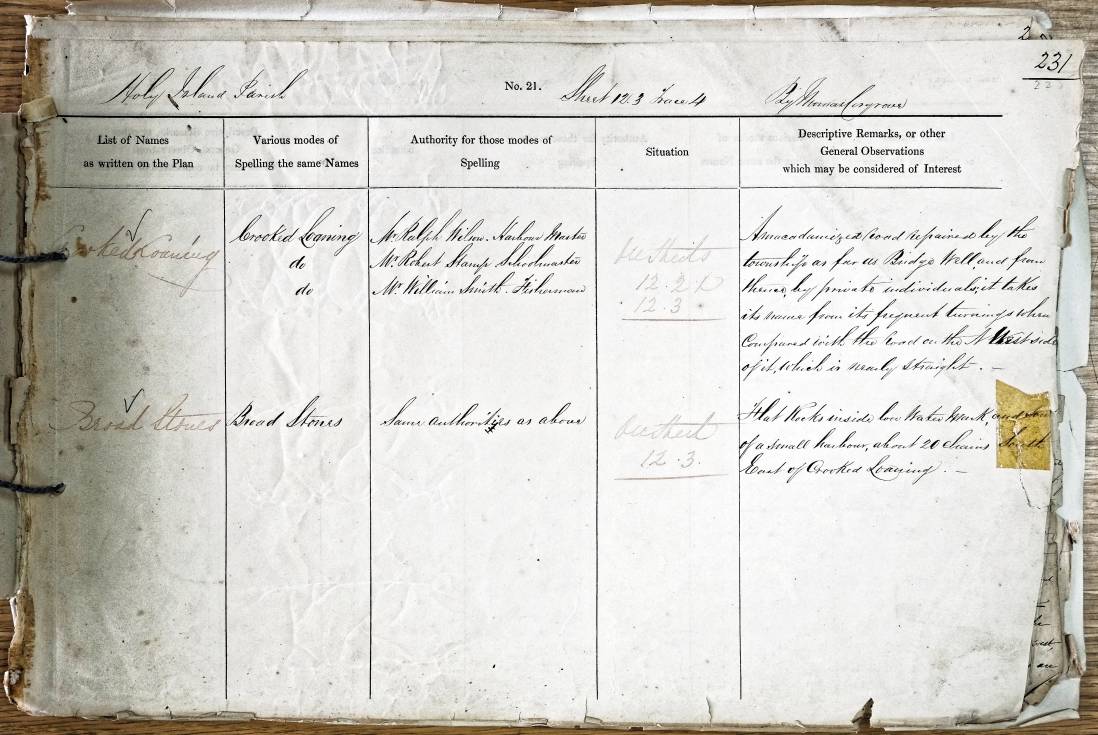 231
Holy Island Parish No. 21. Sheet 12.3 Trace 4 By Thomas Cosgrove
List of Names
as written on the Plan
Various modes of
Spelling the same Names
Authority for those modes of
Spelling
Situation
Descriptive Remarks, or other
General Observations
which may be considered of Interest
Crooked Loaning
Crooked Loaning
do
do
Mr Ralph Wilson. Harbour Master
Mr Robert Stamp Schoolmaster
Mr William Smith. Fisherman
on Sheets
12.2
12.3
A macadamized road repaired by the
township as far as Bridge Well, and from
thence, by private individuals, it takes
its name from its frequent turnings when
Compared with the road on the N West side
of it, which is nearly straight. —
Broad Stones
Broad Stones
Same authorities as above
on Sheet
12.3.
Flat Rocks inside low Water Mark, and
of a small harbour, about 20 chains
East of Crooked Loaning. —